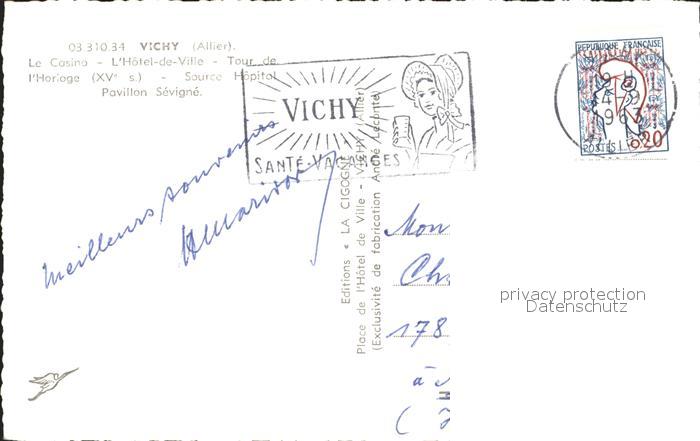 03.310.34 VICHY (Allier).
Le Casino - L'Hôtel-de-Ville - Tour de
l'Horloge (XVe s.) - Source Hôpital
Pavillon Sévigné.
VICHY
SANTÉ-VACANCES
REPUBLIQUE FRANÇAISE
1963
POSTES
0,20
Meilleurs souvenirs
Editions « LA CIGOGNE
Place de l'Hôtel de Ville - VICHY (Allier)
(Exclusivité de fabrication André Leconte)
Mon
178
à
privacy protection
Datenschutz